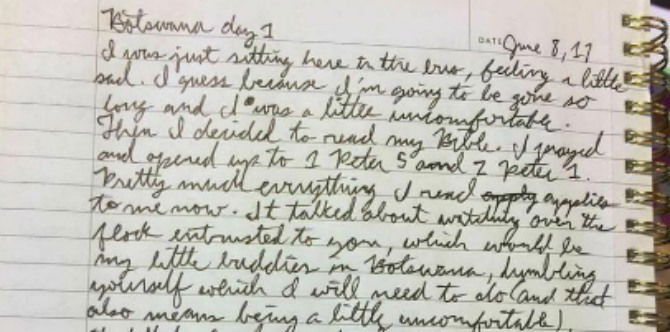 Botswana day 1
DATE June 8, 17
I was just sitting here in the bus, feeling a little
sad. I guess because I'm going to be gone so
long and I was a little uncomfortable.
Then I decided to read my Bible. I prayed
and opened up to 1 Peter 5 and 2 Peter 1.
Pretty much everything I read apply applies
to me now. It talked about watching over the
flock entrusted to you, which would be
my little buddies in Botswana, humbling
yourself which I will need to do (and that
also means being a little uncomfortable)